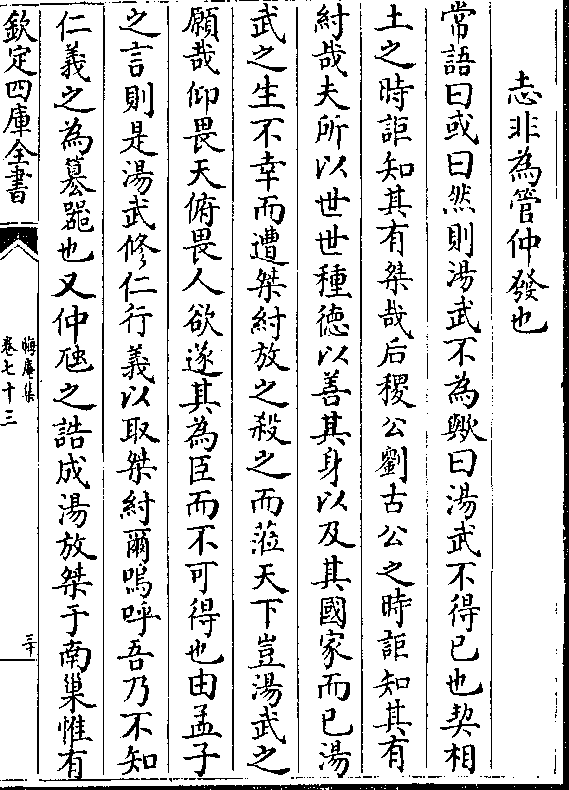 忐非為管仲發也
常語曰或曰然則湯武不為歟曰湯武不得已也契相
土之時詎知其有桀哉后稷公劉古公之時詎知其有
紂哉夫所以世世種德以善其身以及其國家而已湯
武之生不幸而遭桀紂放之殺之而蒞天下豈湯武之
願哉仰畏天俯畏人欲遂其為臣而不可得也由孟子
之言則是湯武修仁行義以取桀紂爾嗚呼吾乃不知
仁義之為篡器也又仲虺之誥成湯放桀于南巢惟有
欽定四庫全書
晦庵集
卷七十三
三十